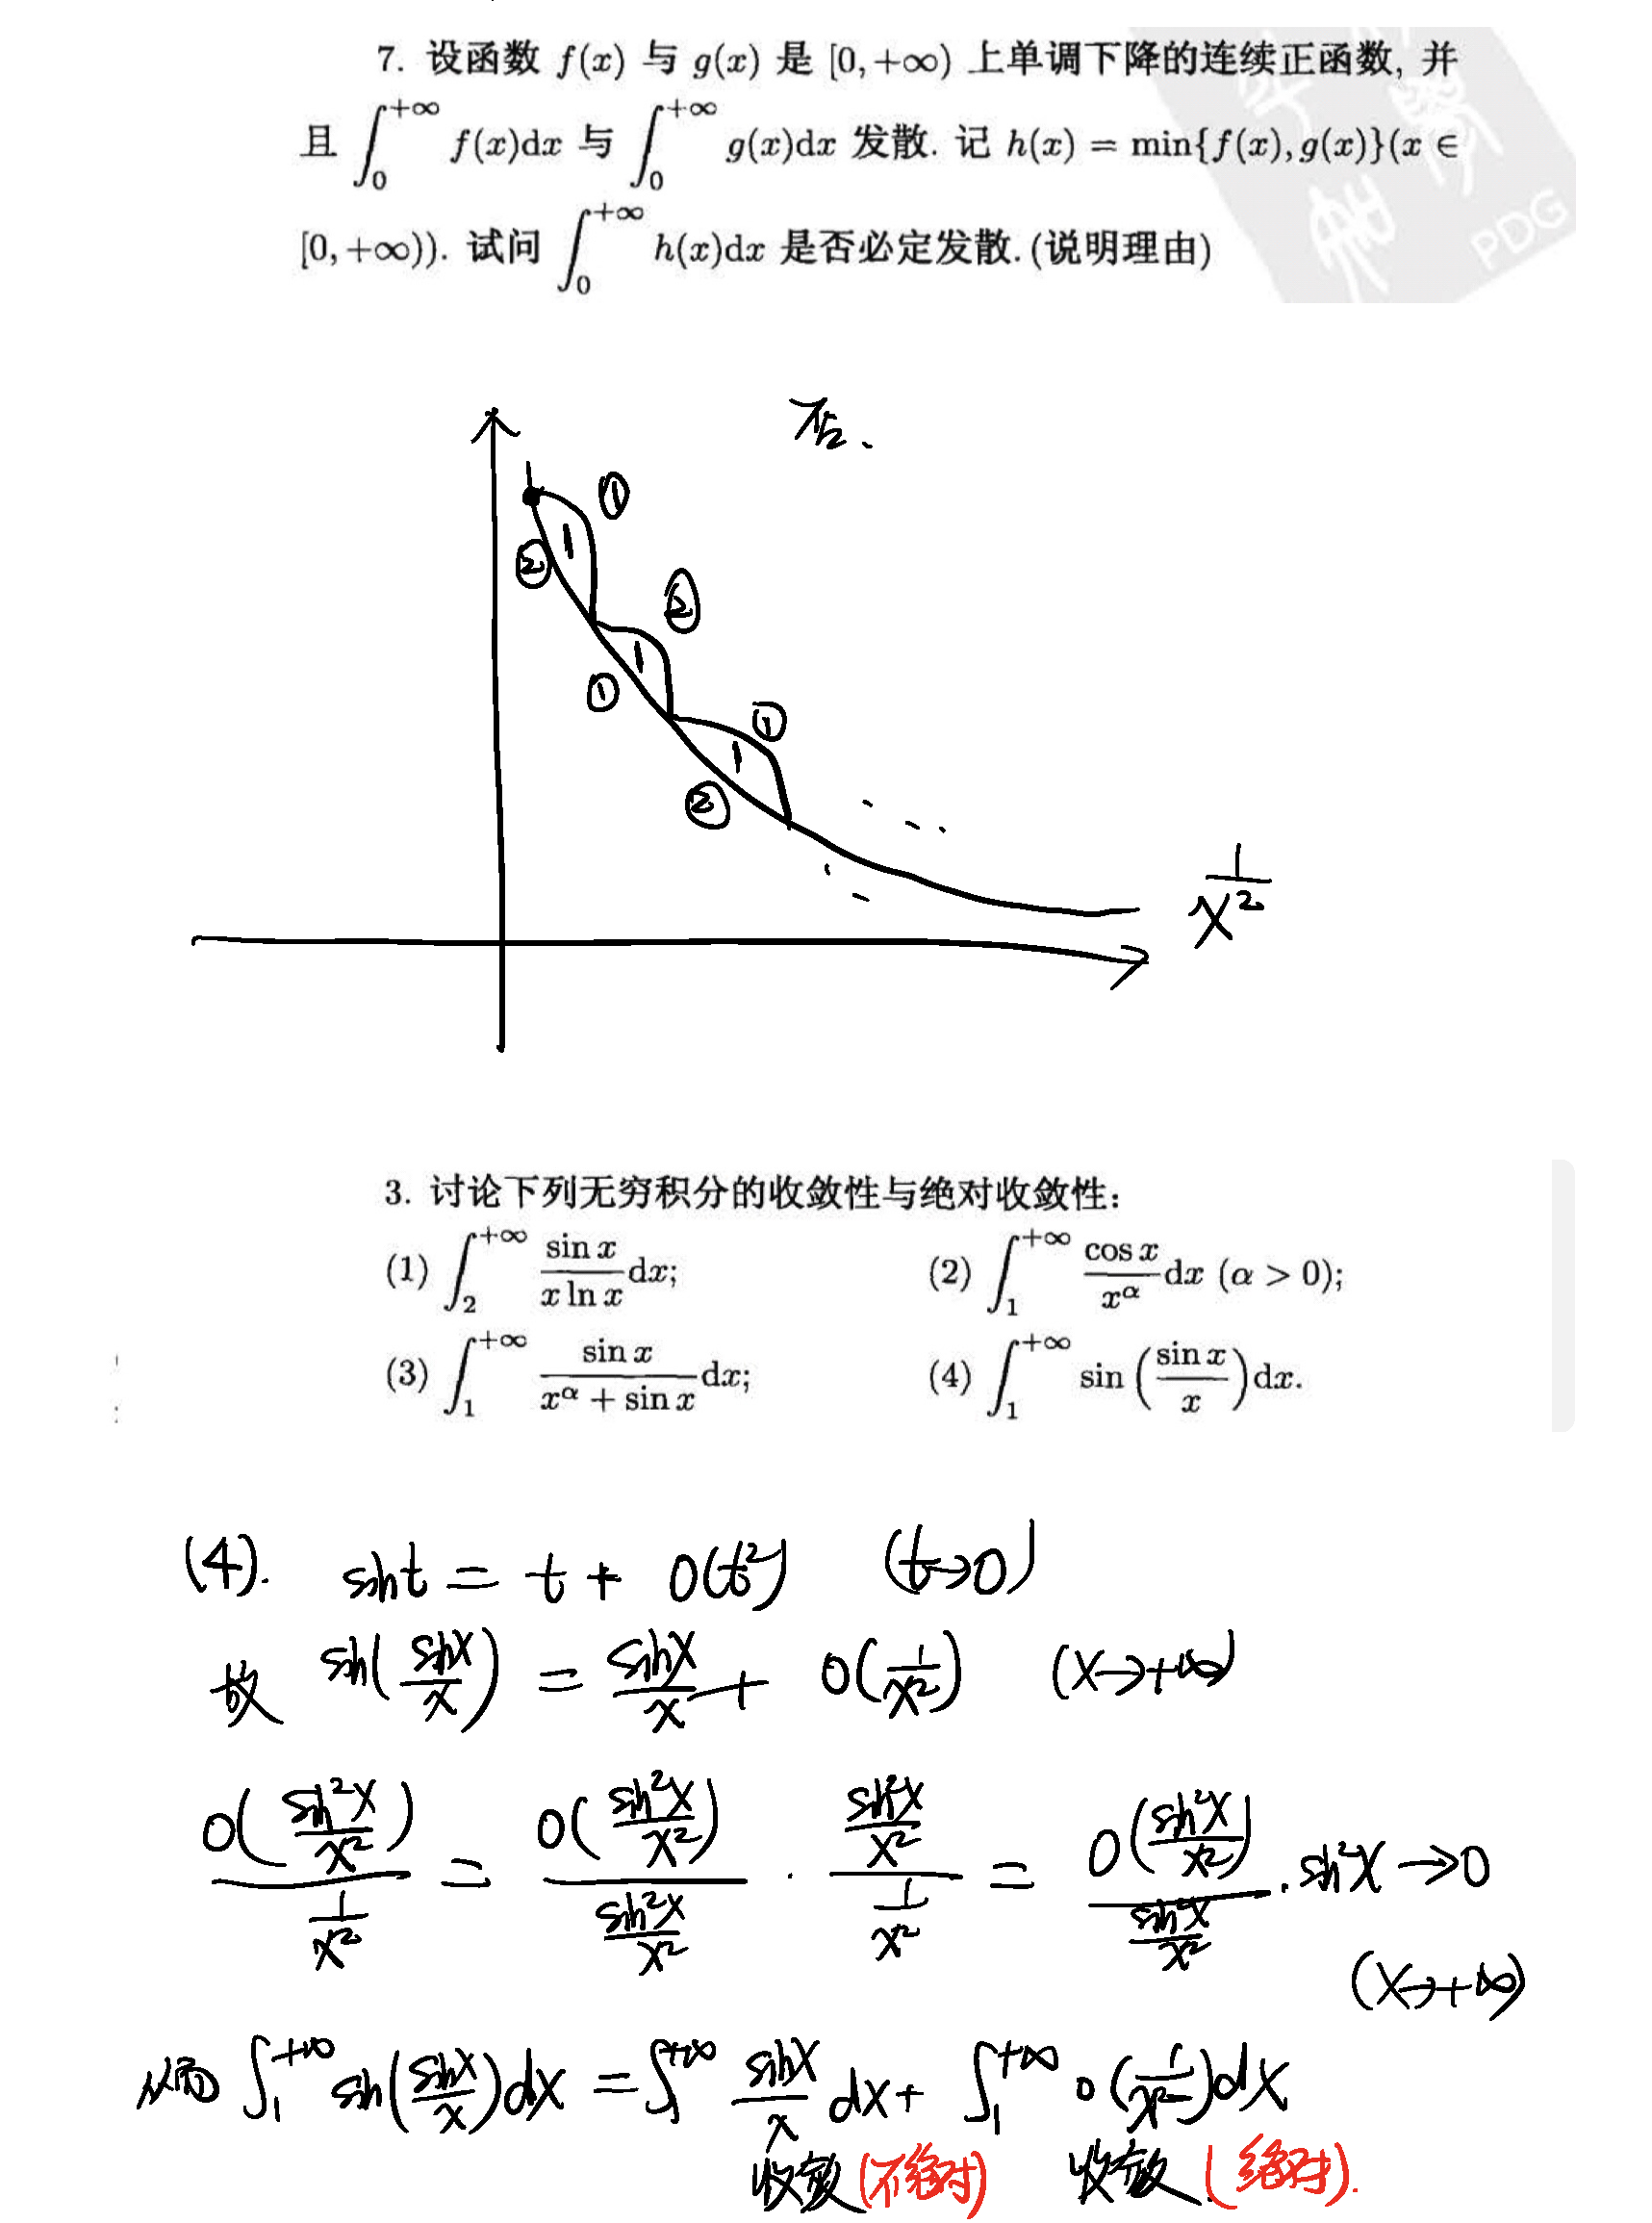 7. 设函数 f(x) 与 g(x) 是 [0,+∞) 上单调下降的连续正函数, 并
且 ∫₀^{+∞} f(x)dx 与 ∫₀^{+∞} g(x)dx 发散. 记 h(x) = min{f(x), g(x)}(x ∈
[0,+∞)). 试问 ∫₀^{+∞} h(x)dx 是否必定发散. (说明理由)
PDG
否、
①
1
②
②
1
①
①
1
②
1/x²
3. 讨论下列无穷积分的收敛性与绝对收敛性:
(1) ∫₂^{+∞} sin x/(x ln x) dx; (2) ∫₁^{+∞} cos x/x^α dx (α > 0);
(3) ∫₁^{+∞} sin x/(x^α + sin x) dx; (4) ∫₁^{+∞} sin(sin x/x) dx.
(4). sin t = t + o(t²) (t→0)
故 sin(sin x/x) = sin x/x + o(1/x²) (x→+∞)
o(sin²x/x²)/(1/x²) = o(sin²x/x²)/(sin²x/x²) · (sin²x/x²)/(1/x²) = o(sin²x/x²)/(sin²x/x²) · sin²x →0
(x→+∞)
从而 ∫₁^{+∞} sin(sin x/x)dx = ∫₁^{+∞} sin x/x dx + ∫₁^{+∞} o(1/x²)dx
收敛(不绝对) 收敛.(绝对).